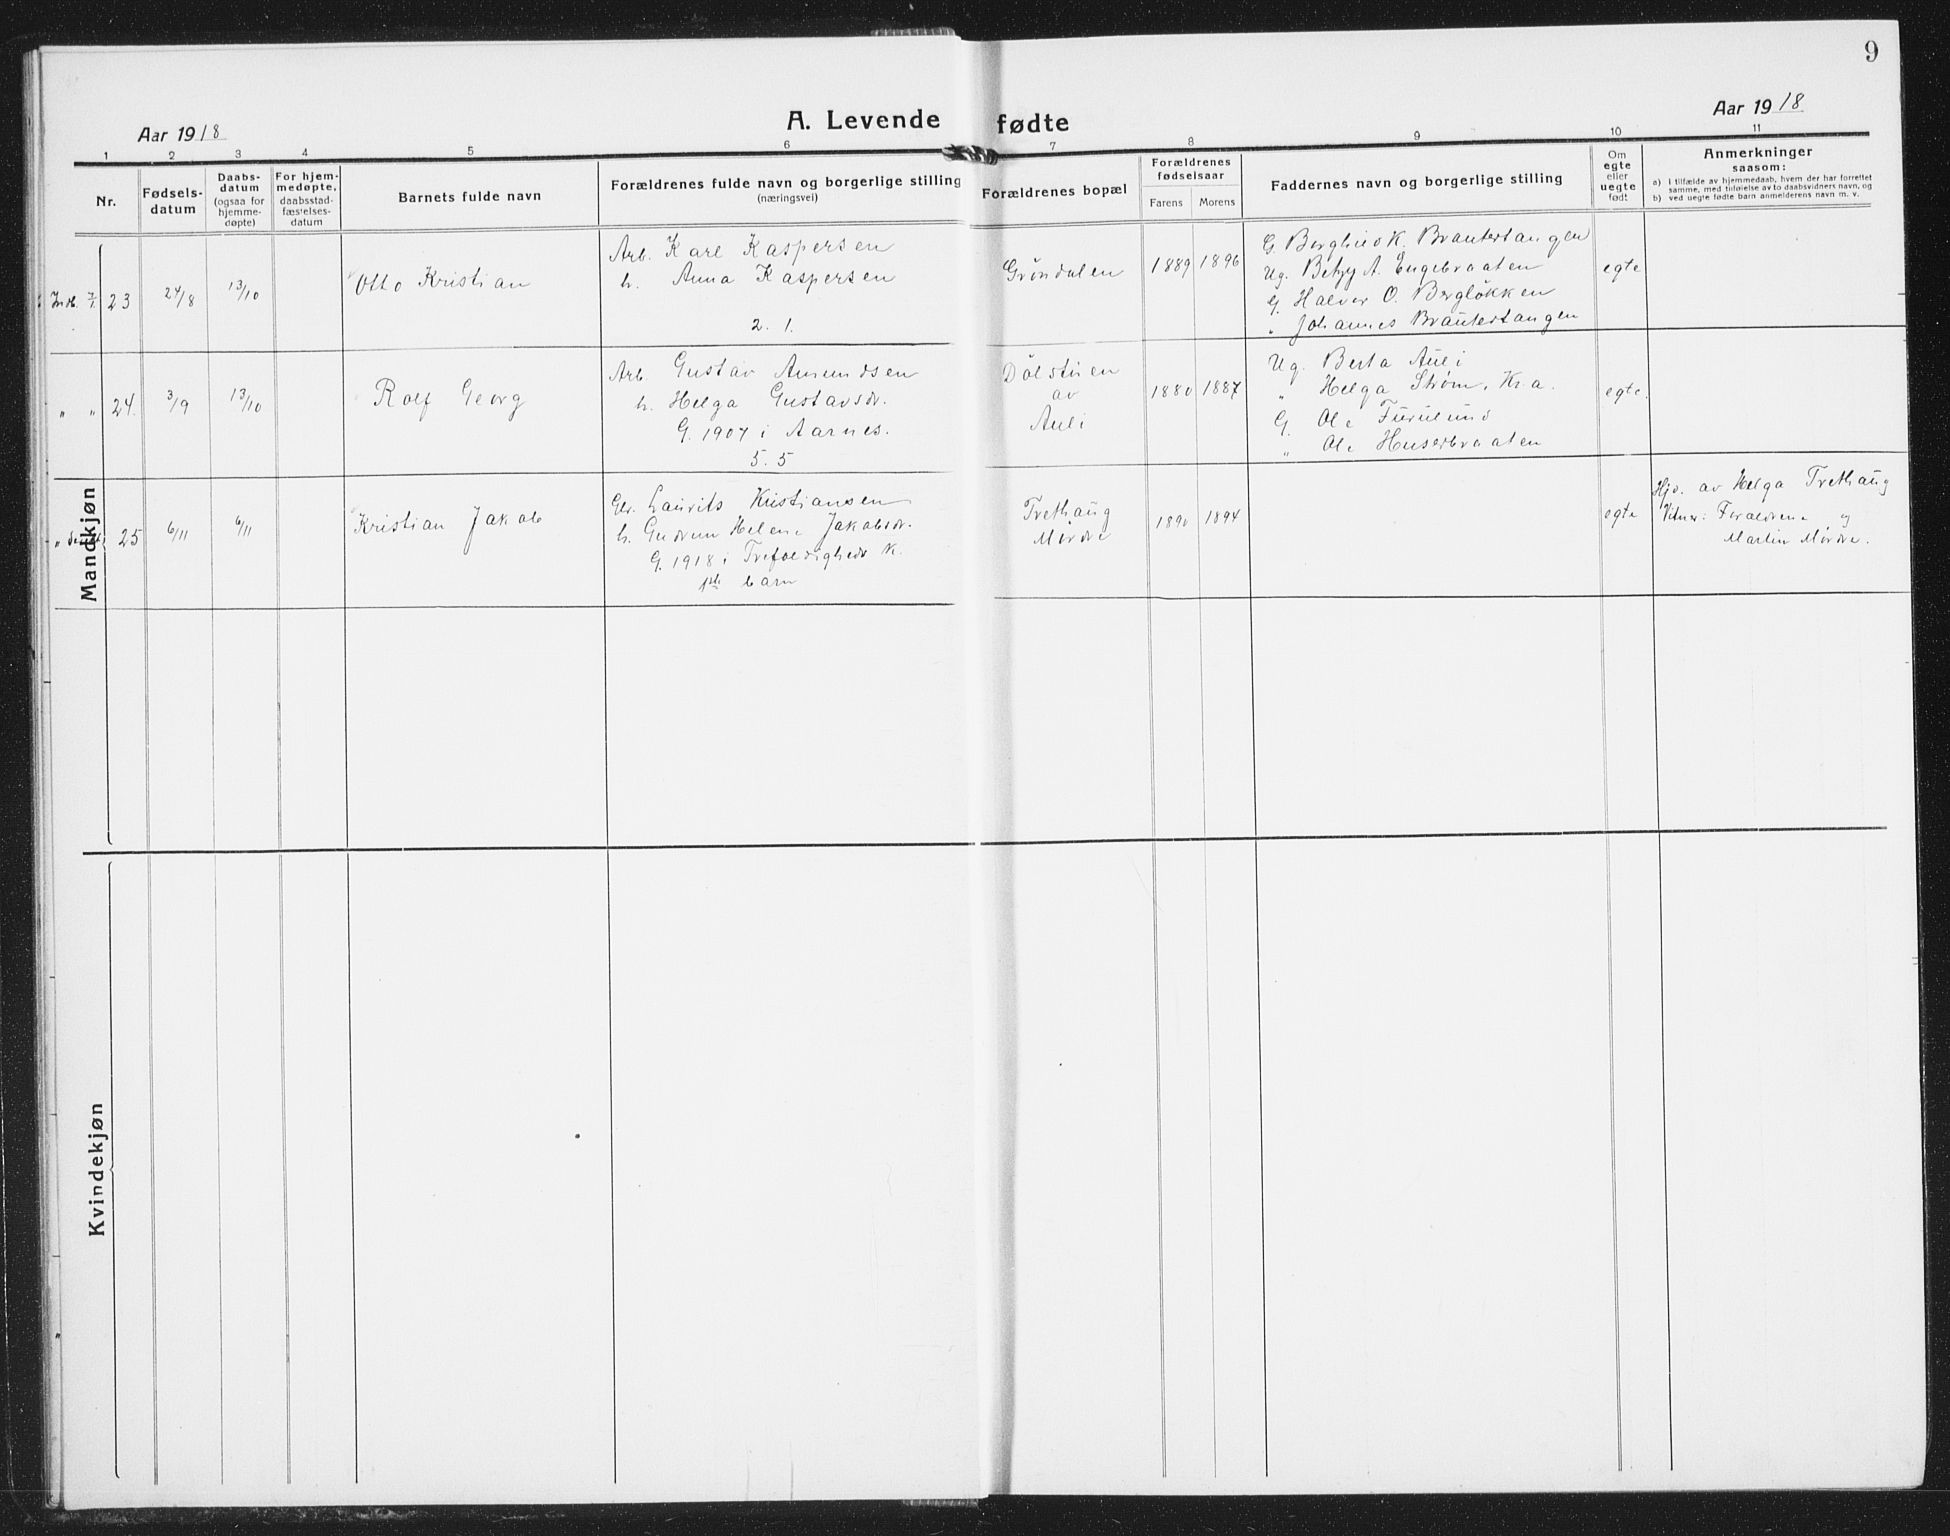 9
Aar 1918
A. Levende fødte
Aar 1918
1 2 3 4 5 6 7 8 9 10 11
Nr.
Fødsels-
datum
Daabs-
datum
(ogsaa for
hjemme-
døpte)
For hjem-
medøpte,
daabsstad-
fæstelses-
datum
Barnets fulde navn
Forældrenes fulde navn og borgerlige stilling
(næringsvei)
Forældrenes bopæl
Forældrenes
fødselsaar
Farens Morens
Faddernes navn og borgerlige stilling
Om
egte
eller
uegte
født
Anmerkninger
saasom:
a) I tilfælde av hjemmedaab, hvem der har forrettet
samme, med tilføielse av to daabsvidners navn, og
b) ved uegte fødte barn anmelderens navn m. v.
Mandkjøn
23
24/8
13/10
Otto Kristian
Arb. Karl Kaspersen
h. Anna Kaspersen
2. 1.
Grøndalen
1889 1896
G. Borghild K. Brautertangen
Ug. Betzy A. Engebraaten
G. Halvor O. Bergløkken
„ Johannes Brautertangen
egte
„ „ 24.
3/9
13/10
Rolf Georg
Arb. Gustav Amundsen
h. Helga Gustavsdr.
G. 1907 i Aarnes.
5. 5
Dølstuen
av
Auli
1880 1887
Ug. Berta Auli
„ Helga Strøm, Kra.
G. Ole Furulund
„ Ole Huserbraaten
egte.
25
6/11
6/11
Kristian Jakob
Laurits Kristiansen
h. Gudrun Helene Jakobsdr.
G. 1918 i Trefoldigheds K.
1ste barn
Trethaug
Mørdre
1890 1894
egte
Hjd. av Helga Trethaug
Vitner: Forældrene og
Martin Mørdre.
Kvindekjøn